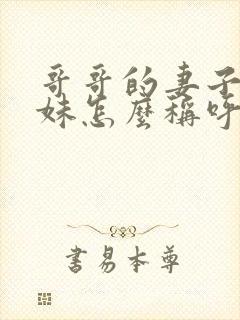 哥哥的妻子
妹怎麼稱呼
書易本尊